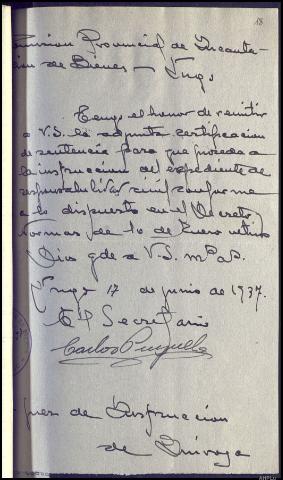 18
Comision Provincial de Incauta-
cion de Bienes — Lugo
Tengo el honor de remitir
a V.S. la adjunta certificacion
de sentencia para que proceda a
la instruccion del expediente de
responsabilidad civil conforme
a lo dispuesto en el Decreto,
Normas de 10 de Enero ultimo
Dios gde a V.S. ms as.
Lugo 17 de junio de 1937.
El Secretario
Carlos
Juez de Instruccion
de Quiroga
AHPLU